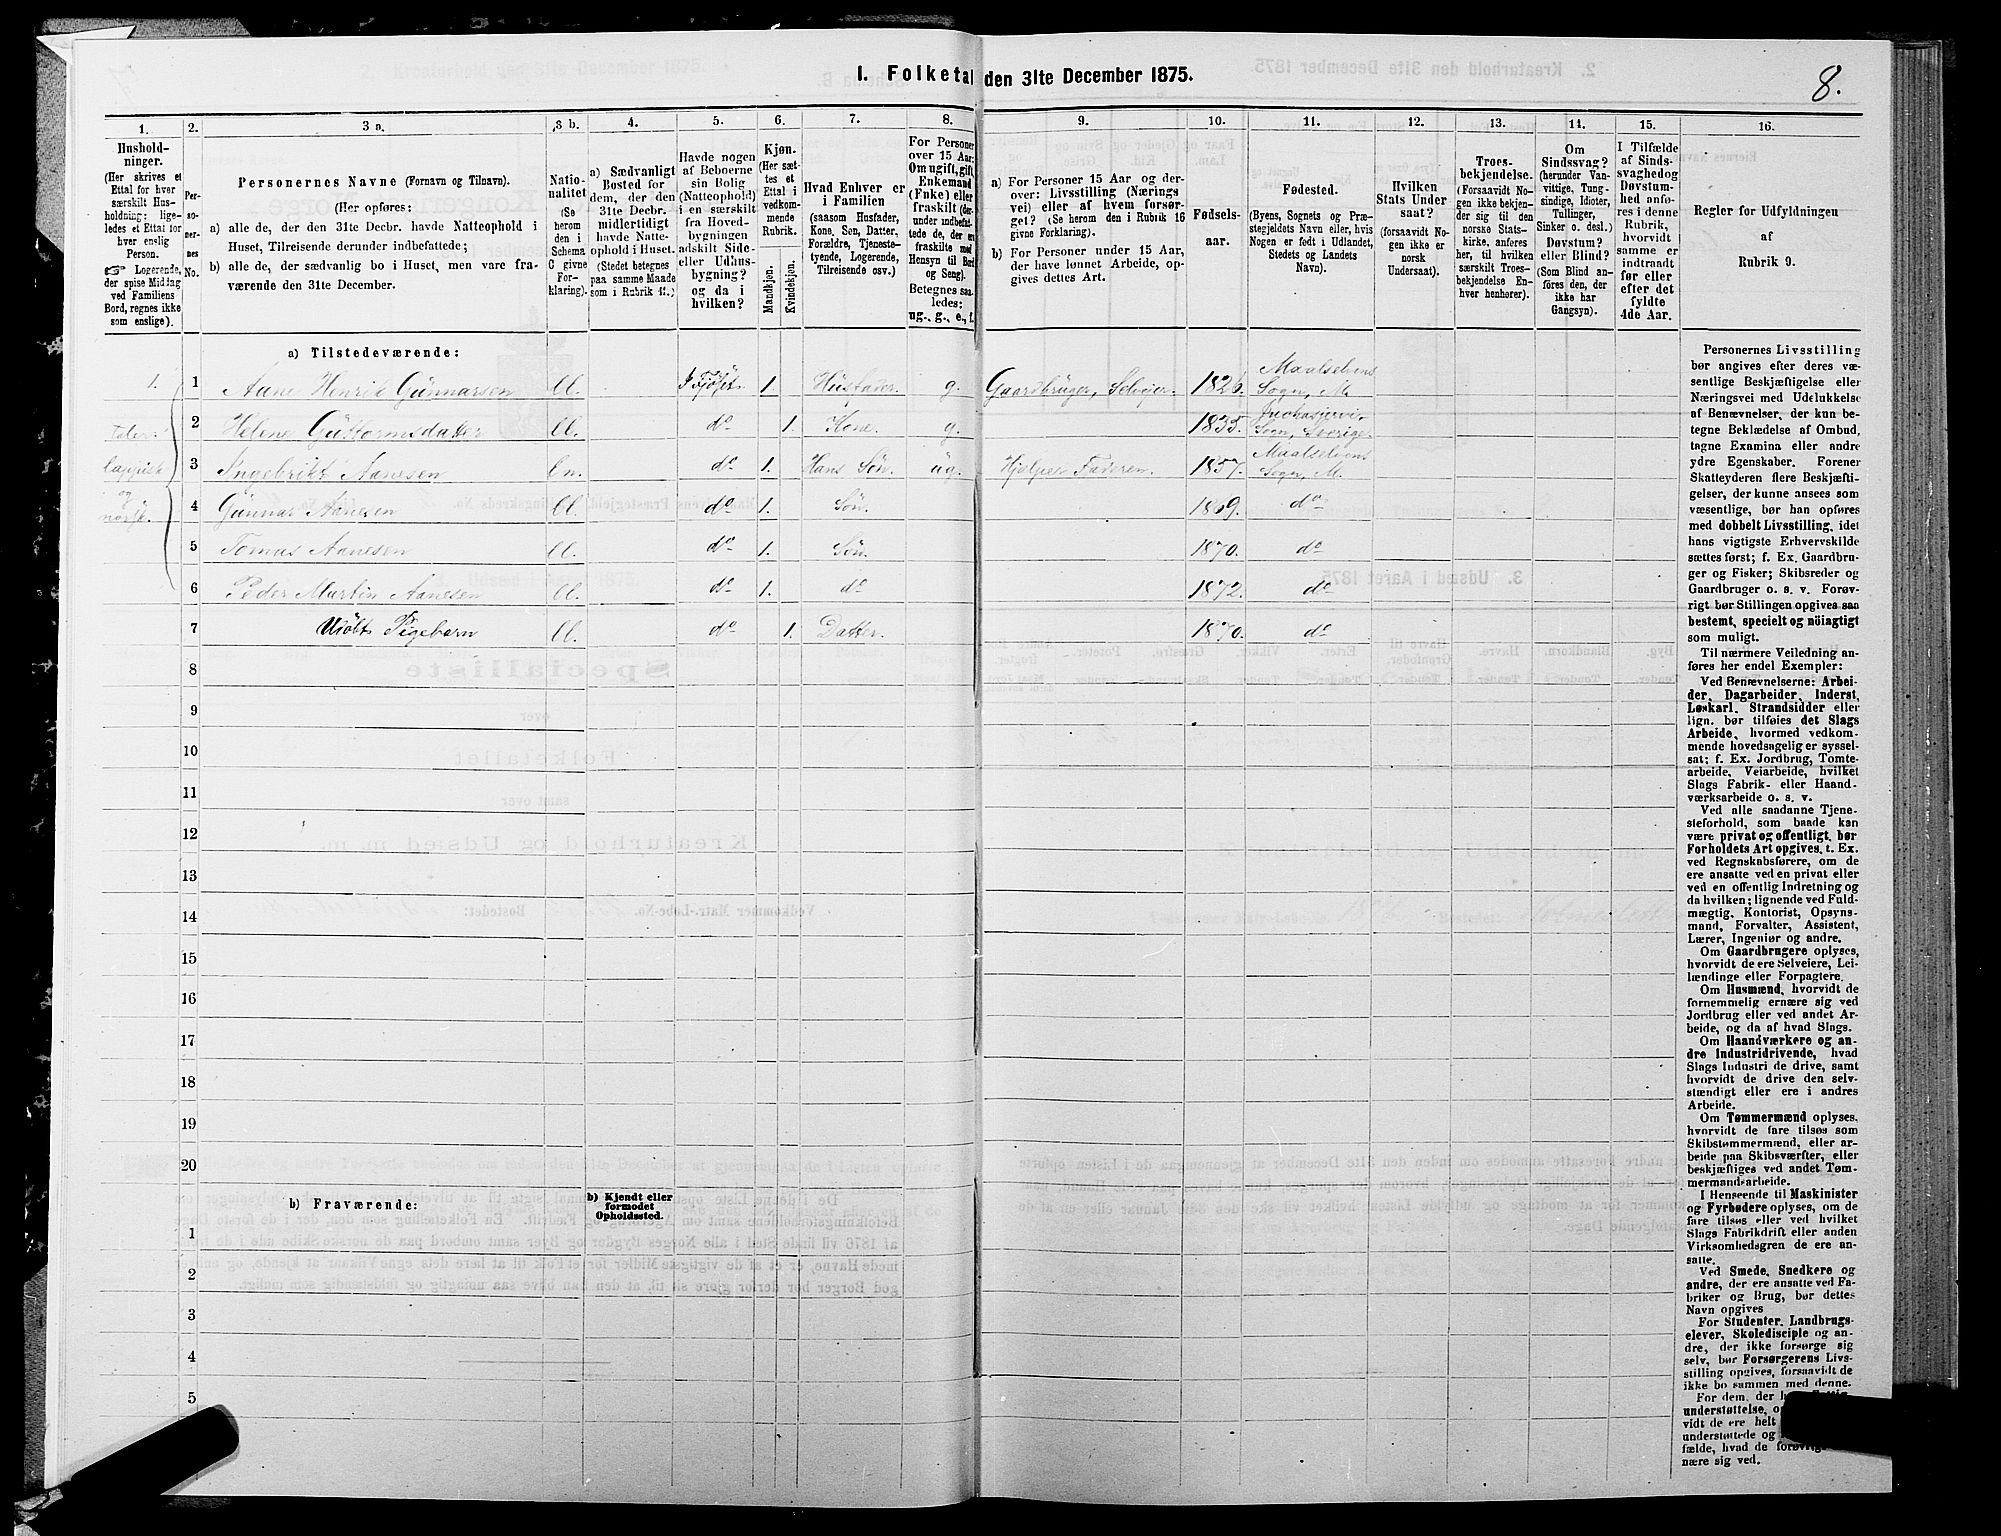 I. Folketal den 31te December 1875.
8.
1.
Hushold-
ninger.
(Her skrives et
Ettal for hver
særskilt Hus-
holdning; lige-
ledes et Ettal for
hver enslig
Person.
☞ Logerende,
der spise Middag
ved Familiens
Bord, regnes ikke
som enslige).
2.
Per-
so-
ner-
nes
No.
3 a.
Personernes Navne (Fornavn og Tilnavn).
(Her opføres:
a) alle de, der den 31te Decbr. havde Natteophold i
Huset, Tilreisende derunder indbefattede;
b) alle de, der sædvanlig bo i Huset, men vare fra-
værende den 31te December.
3 b.
Natio-
nalitet
(Se
herom
den i
Schema
C givne
For-
klaring).
4.
a) Sædvanligt
Bosted for
dem, der den
31te Decbr.
midlertidigt
havde Natte-
ophold i Huset.
(Stedet betegnes
paa samme Maade
som i Rubrik 11.)
5.
Havde nogen
af Beboerne
sin Bolig
(Natteophold)
i en særskilt
fra Hoved-
bygningen
adskilt Side-
eller Udhus-
bygning?
og da i
hvilken?
6.
Kjøn.
(Her sæt-
tes et
Ettal i
vedkom-
mende
Rubrik.
Mandkjøn.
Kvindekjøn.
7.
Hvad Enhver er
i Familien
(saasom Husfader,
Kone, Søn, Datter,
Forældre, Tjeneste-
tyende, Logerende,
Tilreisende osv.)
8.
For Personer
over 15 Aar:
Om ugift, gift,
Enkemand
(Enke) eller
fraskilt (der-
under indbefat-
tede de, der ere
fraskilte med
Hensyn til Bord
og Seng).
Betegnes saa-
ledes:
ug., g., e., f.
9.
a) For Personer 15 Aar og der-
over: Livsstilling (Nærings
vei) eller af hvem forsør-
get? (Se herom den i Rubrik 16
givne Forklaring).
b) For Personer under 15 Aar,
der have lønnet Arbeide, op-
gives dettes Art.
10.
Fødsels-
aar.
11.
Fødested.
(Byens, Sognets og Præ-
stegjeldets Navn eller, hvis
Nogen er født i Udlandet,
Stedets og Landets
Navn).
12.
Hvilken
Stats Under
saat?
(forsaavidt No-
gen ikke er
norsk
Undersaat).
13.
Troes-
bekjendelse.
(Forsaavidt No-
gen ikke bekjen-
der sig til den
norske Stats-
kirke, anføres
her, til hvilken
særskilt Troes-
bekjendelse En-
hver henhører).
14.
Om
Sindssvag?
(herunder Van-
vittige, Tung-
sindige, Idioter,
Tullinger,
Sinker o. desl.)
Døvstum?
eller Blind?
(Som Blind an-
føres den, der
ikke har
Gangsyn).
15.
I Tilfælde
af Sinds-
svaghed og
Døvstum-
hed anfø-
res i denne
Rubrik,
hvorvidt
samme er
indtraadt
før eller
efter det
fyldte
4de Aar.
16.
Regler for Udfyldningen
af
Rubrik 9.
a) Tilstedeværende:
1. 1 Aane Henrik Gunnarsen bl. I Fjøset 1. Husfader g. Gaardbruger, Selveier. 1826. Maalselvens Sogn, M.
2 Helene Guttormsdatter bl. do 1. Kone. g. 1835. Jukkasjervi Sogn, Sverige.
3 Ingebrikt Aanesen bn. do 1. Hans Søn. ug. Hjelper Faderen. 1857. Maalselvens Sogn, M.
4 Gunnar Aanesen bl. do 1. Søn. 1869. do
5 Tomas Aanesen bl. do 1. Søn. 1870. do
6 Peder Martin Aanesen bl. do 1. do 1872. do
7 Udøbt Pigebarn bl. do 1. Datter. 1870. do
Taler
lappisk
og
norsk.
8
9
10
11
12
13
14
15
16
17
18
19
20
b) Fraværende:
b) Kjendt eller
formodet
Opholdssted.
1
2
3
4
5
Personernes Livsstilling
bør angives efter deres væ-
sentlige Beskjæftigelse eller
Næringsvei med Udelukkelse
af Benævnelser, der kun be-
tegne Beklædelse af Ombud,
tagne Examina eller andre
ydre Egenskaber. Forener
Skatteyderen flere Beskjæfti-
gelser, der kunne ansees som
væsentlige, bør han opføres
med dobbelt Livsstilling, idet
hans vigtigste Erhvervskilde
sættes først; f. Ex. Gaardbru-
ger og Fisker; Skibsreder og
Gaardbruger o. s. v. Forøv-
rigt bør Stillingen opgives saa
bestemt, specielt og nöiagtigt
som muligt.
Til nærmere Veiledning an-
føres her endel Exempler:
Ved Benævnelserne: Arbei-
der, Dagarbeider, Inderst,
Løskarl, Strandsidder eller
lign. bør tilføies det Slags
Arbeide, hvormed vedkom-
mende hovedsagelig er syssel-
sat; f. Ex. Jordbrug, Tomte-
arbeide, Veiarbeide, hvilket
Slags Fabrik- eller Haand-
værksarbeide o. s. v.
Ved alle saadanne Tjene-
steforhold, som baade kan
være privat og offentligt, bør
Forholdets Art opgives, t. Ex.
ved Regnskabsførere, om de
ere ansatte ved en privat eller
ved en offentlig Indretning og
da hvilken; lignende ved Fuld-
mægtig, Kontorist, Opsyns-
mand, Forvalter, Assistent,
Lærer, Ingeniør og andre.
Om Gaardbrugere oplyses,
hvorvidt de ere Selveiere, Lei-
lændinge eller Forpagtere.
Om Husmænd, hvorvidt de
fornemmelig ernære sig ved
Jordbrug eller ved andet Ar-
beide, og da af hvad Slags.
Om Haandværkere og an-
dre Industridrivende, hvad
Slags Industri de drive, samt
hvorvidt de drive den selv-
stændigt eller ere i andres
Arbeide.
Om Tømmermænd oplyses,
hvorvidt de fare tilsøs som
Skibstømmermænd, eller ar-
beide paa Skibsværfter, eller
beskjæftiges ved andet Tøm-
mermandsarbeide.
I Henseende til Maskinister
og Fyrbødere oplyses, om de
fare tilsøs eller ved hvilket
Slags Fabrikdrift eller anden
Virksomhedsgren de ere an-
satte.
Ved Smede, Snedkere og
andre, der ere ansatte ved Fa-
briker og Brug, bør dettes
Navn opgives
For Studenter, Landbrugs-
elever, Skoledisciple og an-
dre, der ikke forsørge sig
selv, bør Forsørgerens Livs-
stilling opgives, forsaavidt de
ikke bo sammen med denne.
For dem, der h
understøttelse, o
vidt de ere helt
understøttede og
fælde, hvad de forøvrigt
nære sig ved.